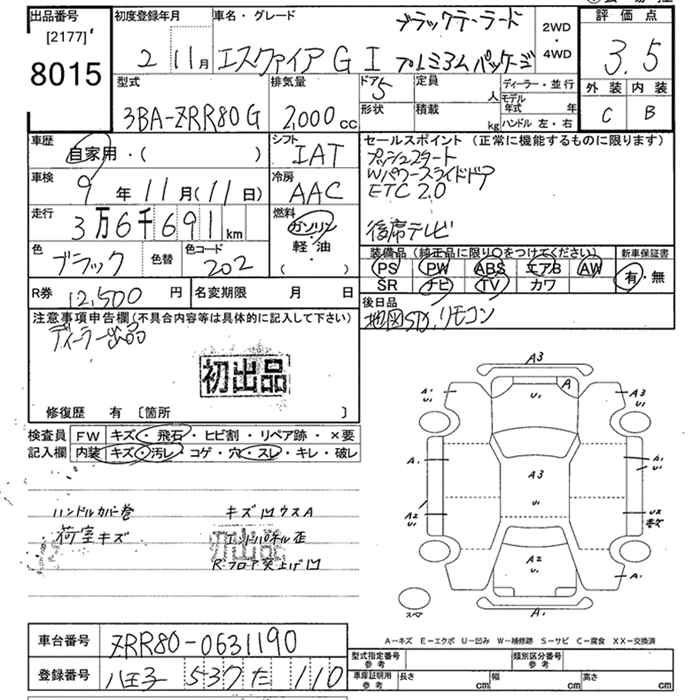 出品番号
[2177]
8015
初度登録年月
2年 11月
車名・グレード
ブラックテーラード
エスクァイア G I プレミアムパッケージ
2WD
・
4WD
評価点
3.5
外装 内装
C B
型式
3BA-ZRR80G
排気量
2,000cc
ドア
5
形状
定員
人
積載
kg
ディーラー・並行
モデル年式 年
ハンドル 左・右
車歴
自家用・( )
シフト
IAT
車検
9年11月(11日)
冷房
AAC
走行
3万6千691km
燃料
ガソリン
軽・油
( )
色
ブラック
色替
色コード
202
R券 12,500円
名変期限 月 日
セールスポイント(正常に機能するものに限ります)
プッシュスタート
Wパワースライドドア
ETC 2.0
後席テレビ
装備品(純正品に限り○をつけてください)
新車保証書
PS PW ABS エアB AW
SR ナビ TV カワ
有・無
後日品
地図SD,リモコン
注意事項申告欄(不具合内容等は具体的に記入して下さい)
ディーラー出品
初出品
修復歴 有 [箇所 ]
検査員
記入欄
FW キズ・飛石・ヒビ割・リペア跡・×要
内装 キズ・汚レ・コゲ・穴・スレ・キレ・破レ
ハンドルカバー巻
荷室キズ
キズ凹ウスA
エンドパネル歪
Rフロア突上げ凹
初出品
A3
A1
U1
U1
A
A3
U1
A1
A3
U1
A1
U1
A2
U1
U2
A2
U1
A1
A1
スペア
A－キズ E－エクボ U－凹み W－補修跡 S－サビ C－腐食 XX－交換済
車台番号 ZRR80-0631190
登録番号 八王子 537 た 110
型式指定番号
参考
類別区分番号
参考
車庫証明用
参考
長さ cm 幅 cm 高さ cm